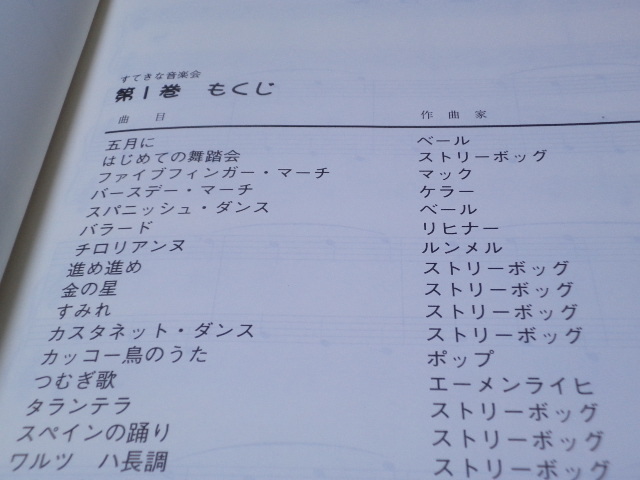 すてきな音楽会
第1巻 もくじ
曲目 作曲家
五月に ベール
はじめての舞踏会 ストリーボッグ
ファイブフィンガー・マーチ マック
バースデー・マーチ ケラー
スパニッシュ・ダンス ベール
バラード リヒナー
チロリアンヌ ルンメル
進め進め ストリーボッグ
金の星 ストリーボッグ
すみれ ストリーボッグ
カスタネット・ダンス ストリーボッグ
カッコー鳥のうた ポップ
つむぎ歌 エーメンライヒ
タランテラ ストリーボッグ
スペインの踊り ストリーボッグ
ワルツ ハ長調 ストリーボッグ